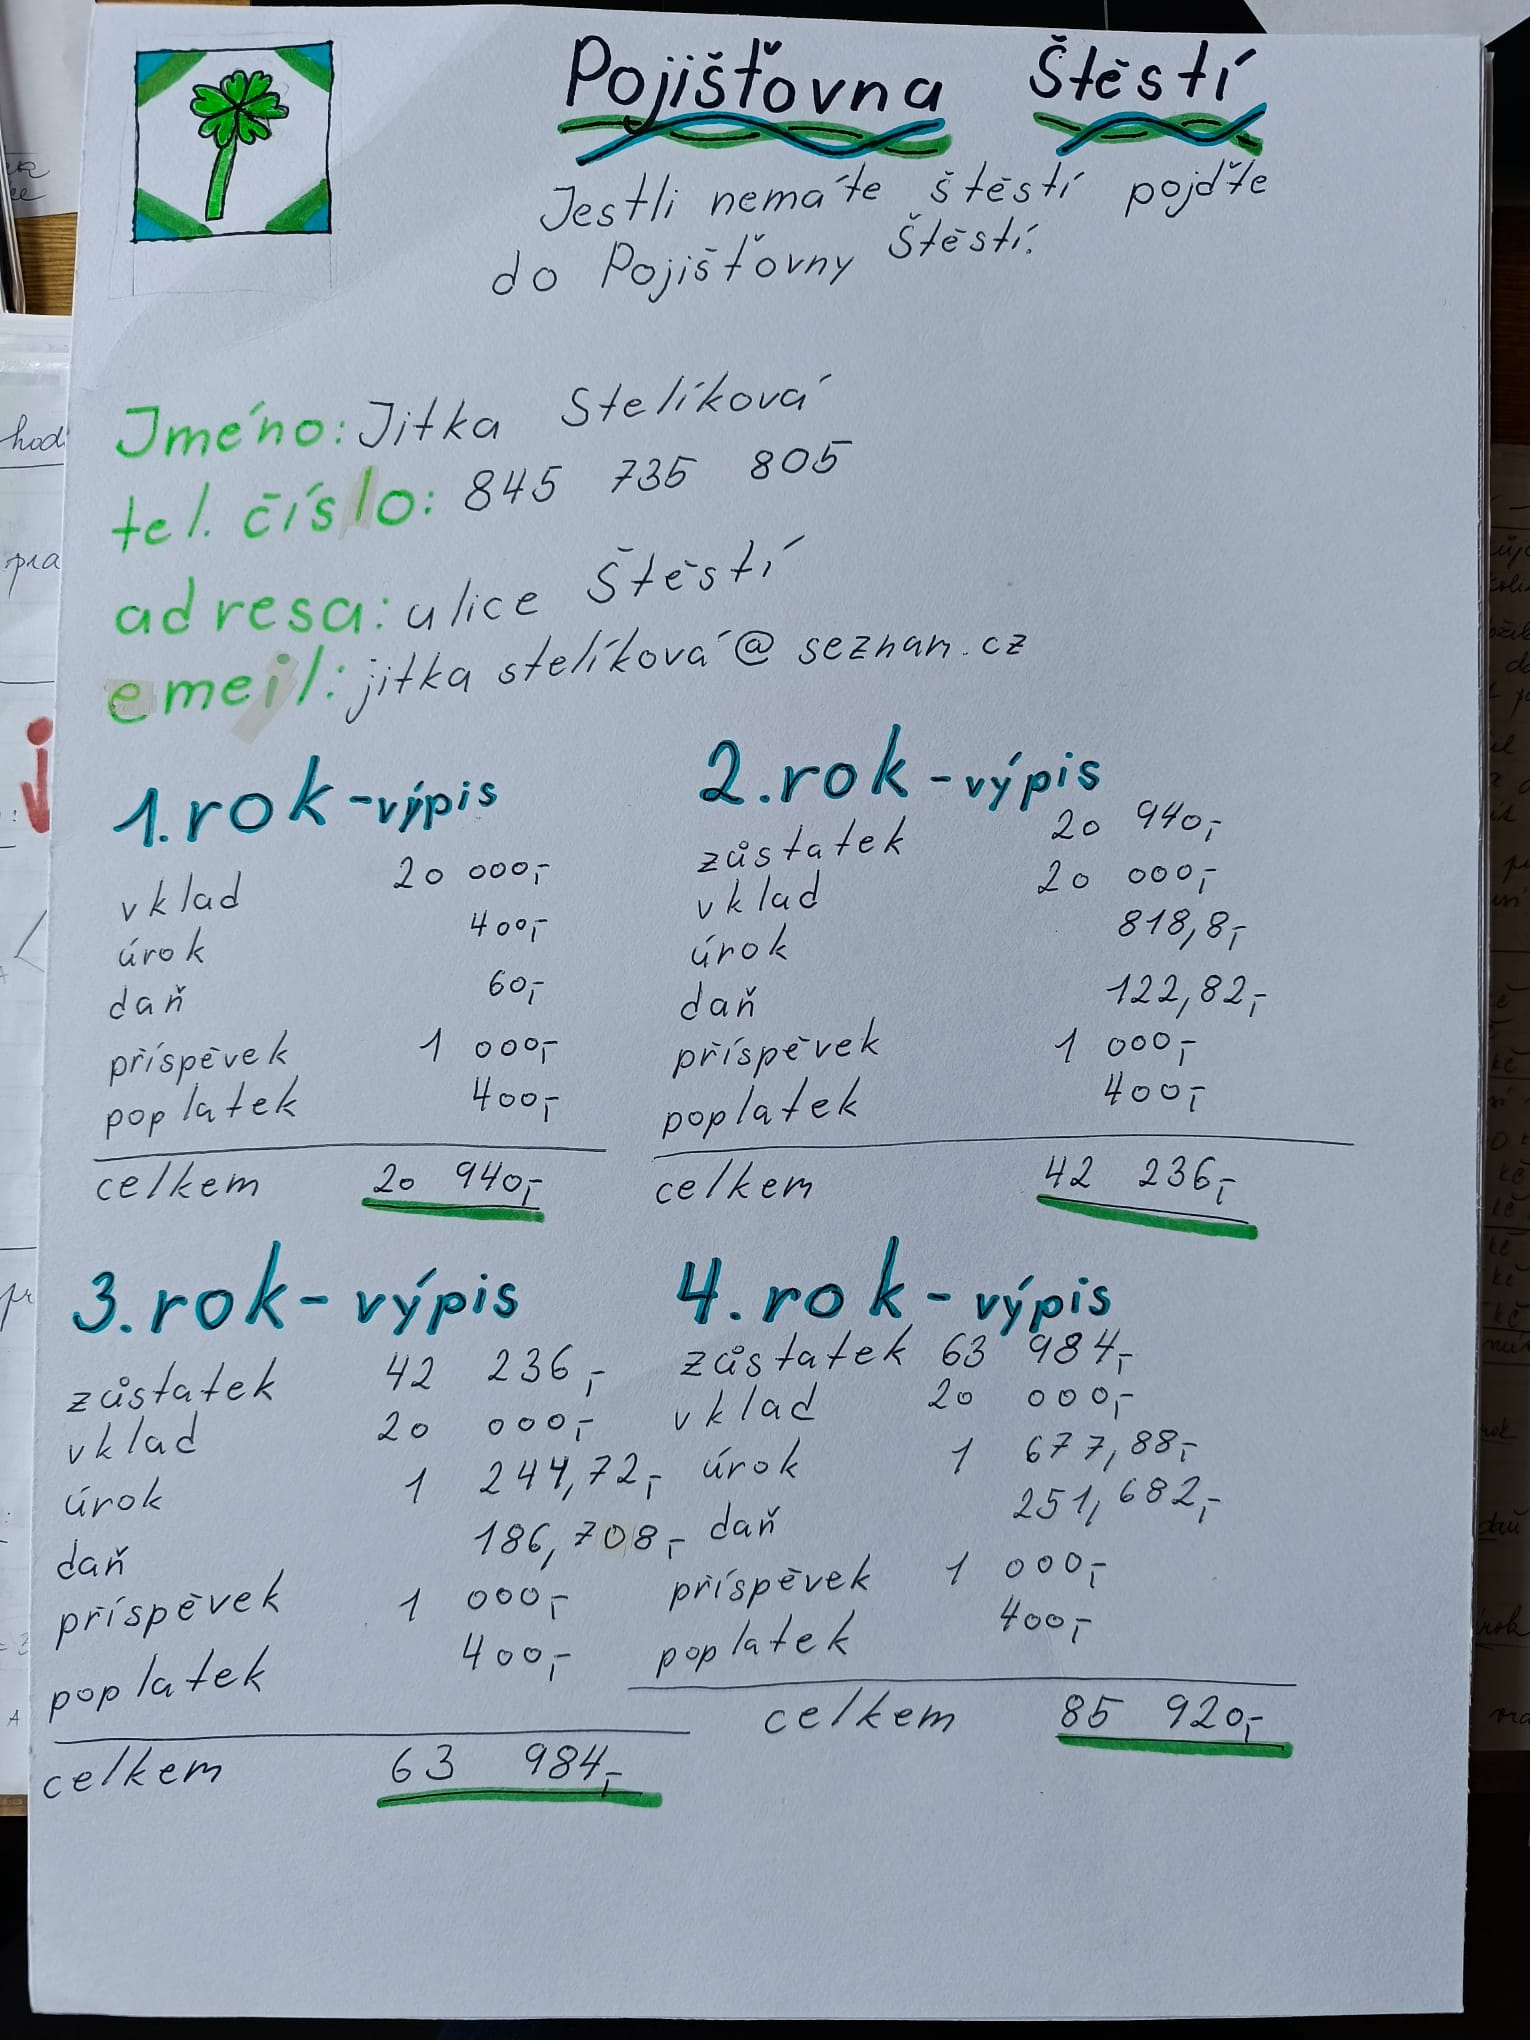 Pojišťovna Štěstí
Jestli nemáte štěstí pojďte
do Pojišťovny Štěstí.
Jméno: Jitka Stelíková
tel. číslo: 845 735 805
adresa: ulice Štěstí
emeil: jitka stelíková@seznam.cz
1. rok - výpis
vklad 20 000,-
úrok 400,-
daň 60,-
příspěvek 1 000,-
poplatek 400,-
celkem 20 940,-
2. rok - výpis
zůstatek 20 940,-
vklad 20 000,-
úrok 818,8,-
daň 122,82,-
příspěvek 1 000,-
poplatek 400,-
celkem 42 236,-
3. rok - výpis
zůstatek 42 236,-
vklad 20 000,-
úrok 1 244,72,-
daň 186,708,-
příspěvek 1 000,-
poplatek 400,-
celkem 63 984,-
4. rok - výpis
zůstatek 63 984,-
vklad 20 000,-
úrok 1 677,88,-
daň 251,682,-
příspěvek 1 000,-
poplatek 400,-
celkem 85 920,-